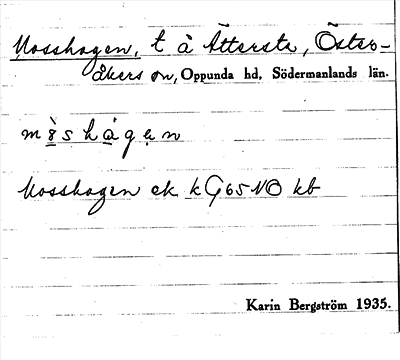 Mosshagen, t å Åtterste, Öster-
åkers sn, Oppunda hd, Södermanlands län.
Mosshagen ek kG65NO kb
Karin Bergström 1935.